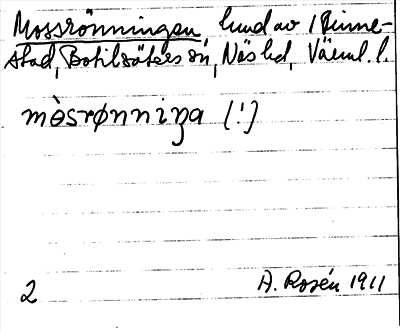 Mossrönningen, lund av 1 Rinne-
stad, Botilsäters sn, Näs hd, Värml. l.
mòsrønniŋa (!)
2
A. Rosén 1911